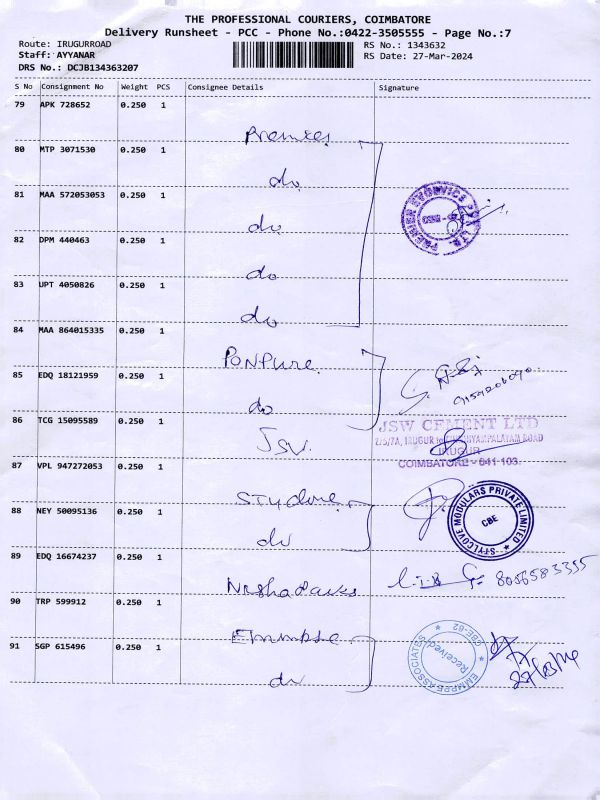 THE PROFESSIONAL COURIERS, COIMBATORE
Delivery Runsheet - PCC - Phone No.:0422-3505555 - Page No.:7
Route: IRUGURROAD
Staff: AYYANAR
DRS No.: DCJB134363207
RS No.: 1343632
RS Date: 27-Mar-2024
S No Consignment No Weight PCS Consignee Details Signature
79 APK 728652 0.250 1
Premier
80 MTP 3071530 0.250 1
do
81 MAA 572053053 0.250 1
do
82 DPM 440463 0.250 1
do
83 UPT 4050826 0.250 1
do
84 MAA 864015335 0.250 1
PonPure
85 EDQ 18121959 0.250 1
do
86 TCG 15095589 0.250 1
JSW
JSW CEMENT LTD
IRUGUR
COIMBATORE - 641 103.
87 VPL 947272053 0.250 1
88 NEY 50095136 0.250 1
do
STYLCOVE MODULARS PRIVATE LIMITED
CBE
89 EDQ 16674237 0.250 1
8056583355
90 TRP 599912 0.250 1
91 SGP 615496 0.250 1
do
Received
CBE-62